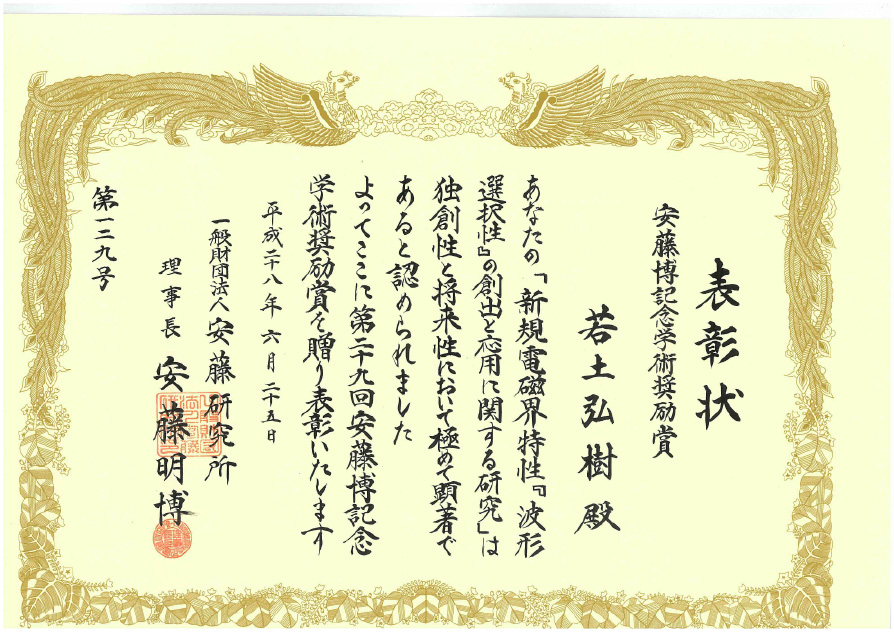 表彰状
安藤博記念学術奨励賞
若土弘樹殿
あなたの「新規電磁界特性『波形
選択性』の創出と応用に関する研究」は
独創性と将来性において極めて顕著で
あると認められました
よってここに第二十九回安藤博記念
学術奨励賞を贈り表彰いたします
平成二十八年六月二十五日
一般財団法人安藤研究所
理事長安藤明博
第一二九号